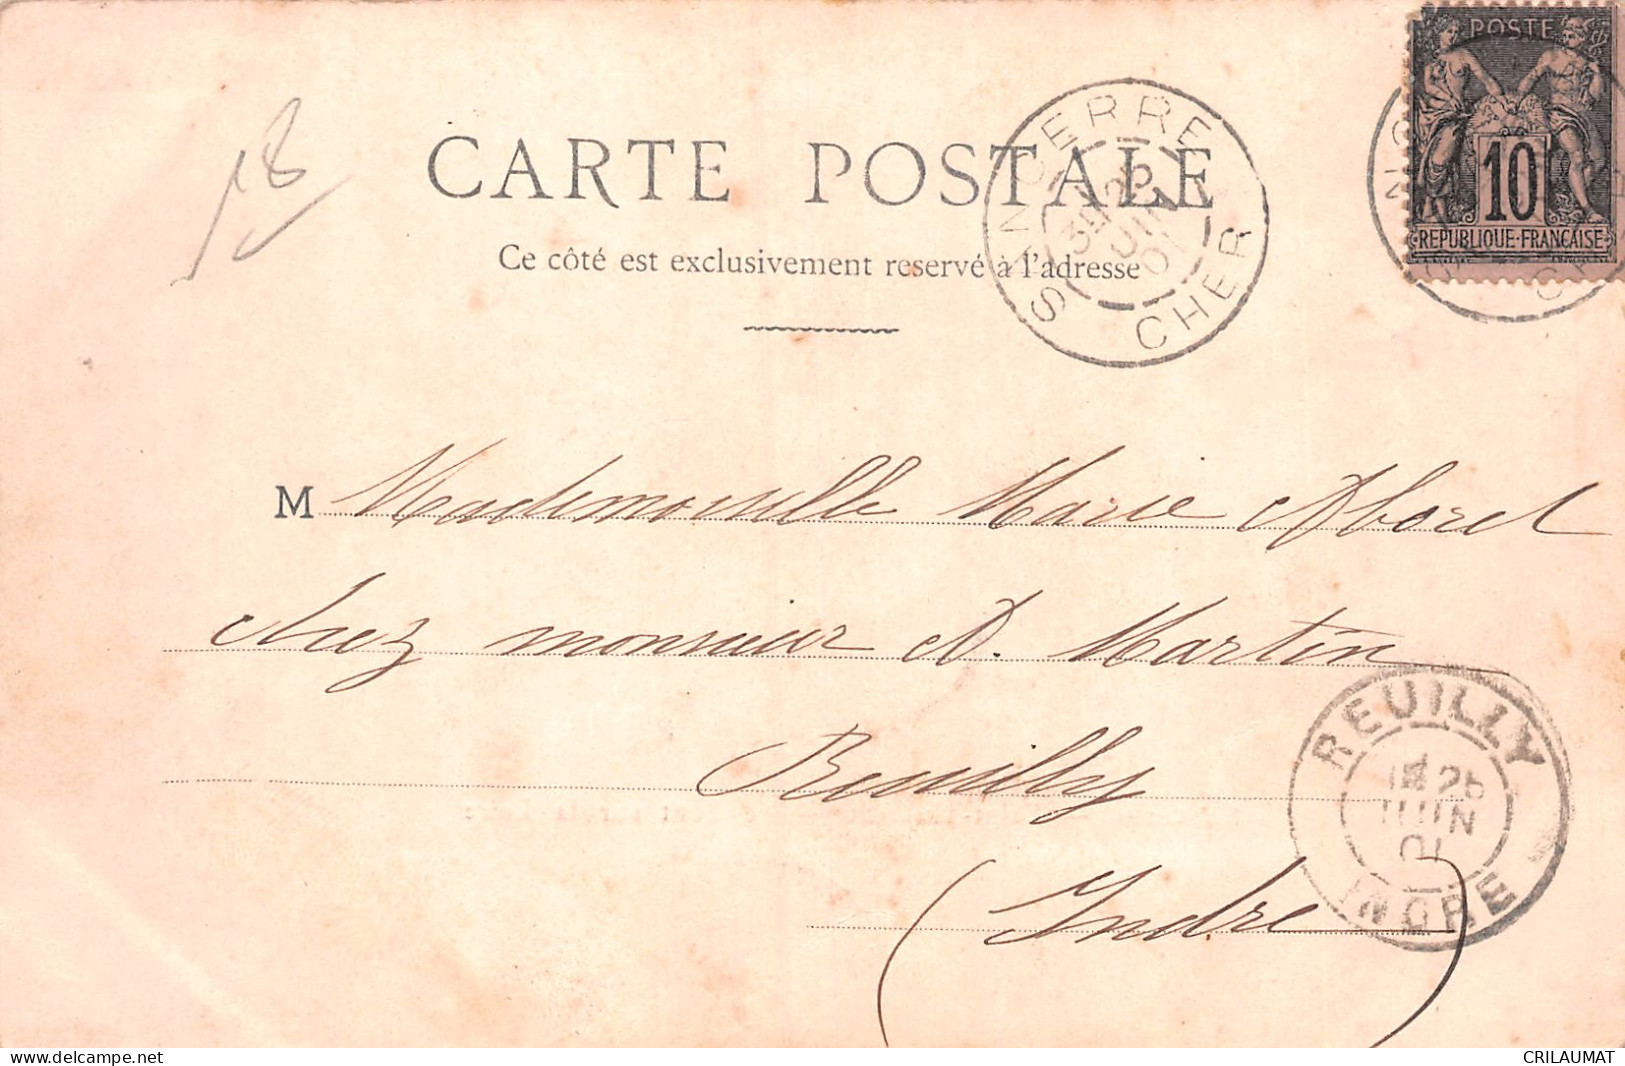 18
CARTE POSTALE
Ce côté est exclusivement reservé à l'adresse
SANCERRE
JUIN
01
CHER
POSTE
10
REPUBLIQUE FRANCAISE
M Mademoiselle Marie Aboret
chez monsieur A. Martin
Reuilly
(Indre)
REUILLY
25
JUIN
01
INDRE
delcampe.net
CRILAUMAT